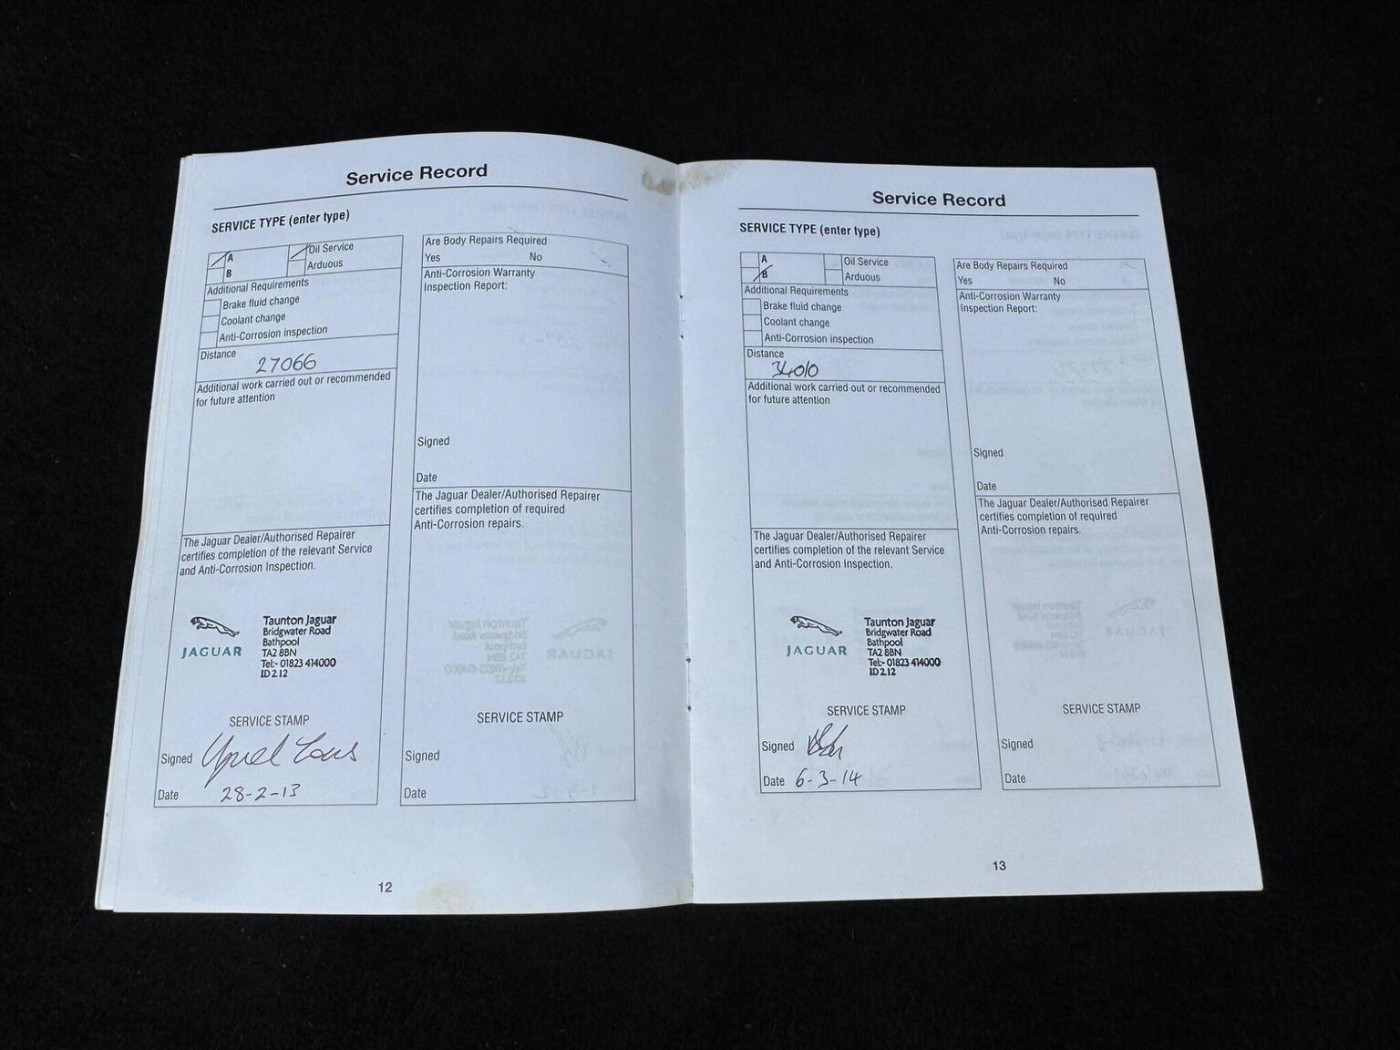 Service Record
SERVICE TYPE (enter type)
A
Oil Service
B
Arduous
Additional Requirements
Brake fluid change
Coolant change
Anti-Corrosion inspection
Distance
27066
Additional work carried out or recommended
for future attention
The Jaguar Dealer/Authorised Repairer
certifies completion of the relevant Service
and Anti-Corrosion Inspection.
JAGUAR
Taunton Jaguar
Bridgwater Road
Bathpool
TA2 8BN
Tel:- 01823 414000
ID212
SERVICE STAMP
Signed
Date 28-2-13
Are Body Repairs Required
Yes No
Anti-Corrosion Warranty
Inspection Report:
Signed
Date
The Jaguar Dealer/Authorised Repairer
certifies completion of required
Anti-Corrosion repairs.
SERVICE STAMP
Signed
Date
12
Service Record
SERVICE TYPE (enter type)
A
Oil Service
B
Arduous
Additional Requirements
Brake fluid change
Coolant change
Anti-Corrosion inspection
Distance
34010
Additional work carried out or recommended
for future attention
The Jaguar Dealer/Authorised Repairer
certifies completion of the relevant Service
and Anti-Corrosion Inspection.
JAGUAR
Taunton Jaguar
Bridgwater Road
Bathpool
TA2 8BN
Tel:- 01823 414000
ID212
SERVICE STAMP
Signed
Date 6-3-14
Are Body Repairs Required
Yes No
Anti-Corrosion Warranty
Inspection Report:
Signed
Date
The Jaguar Dealer/Authorised Repairer
certifies completion of required
Anti-Corrosion repairs.
SERVICE STAMP
Signed
Date
13